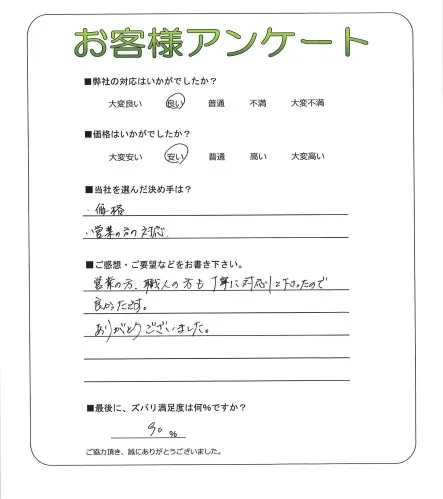 お客様アンケート
■弊社の対応はいかがでしたか?
大変良い 良い 普通 不満 大変不満
■価格はいかがでしたか?
大変安い 安い 普通 高い 大変高い
■当社を選んだ決め手は?
・価格
・営業の方の対応
■ご感想・ご要望などをお書き下さい。
営業の方、職人の方も丁寧に対応して下さったので
良かったです。
ありがとうございました。
■最後に、ズバリ満足度は何%ですか?
90 %
ご協力頂き、誠にありがとうございました。